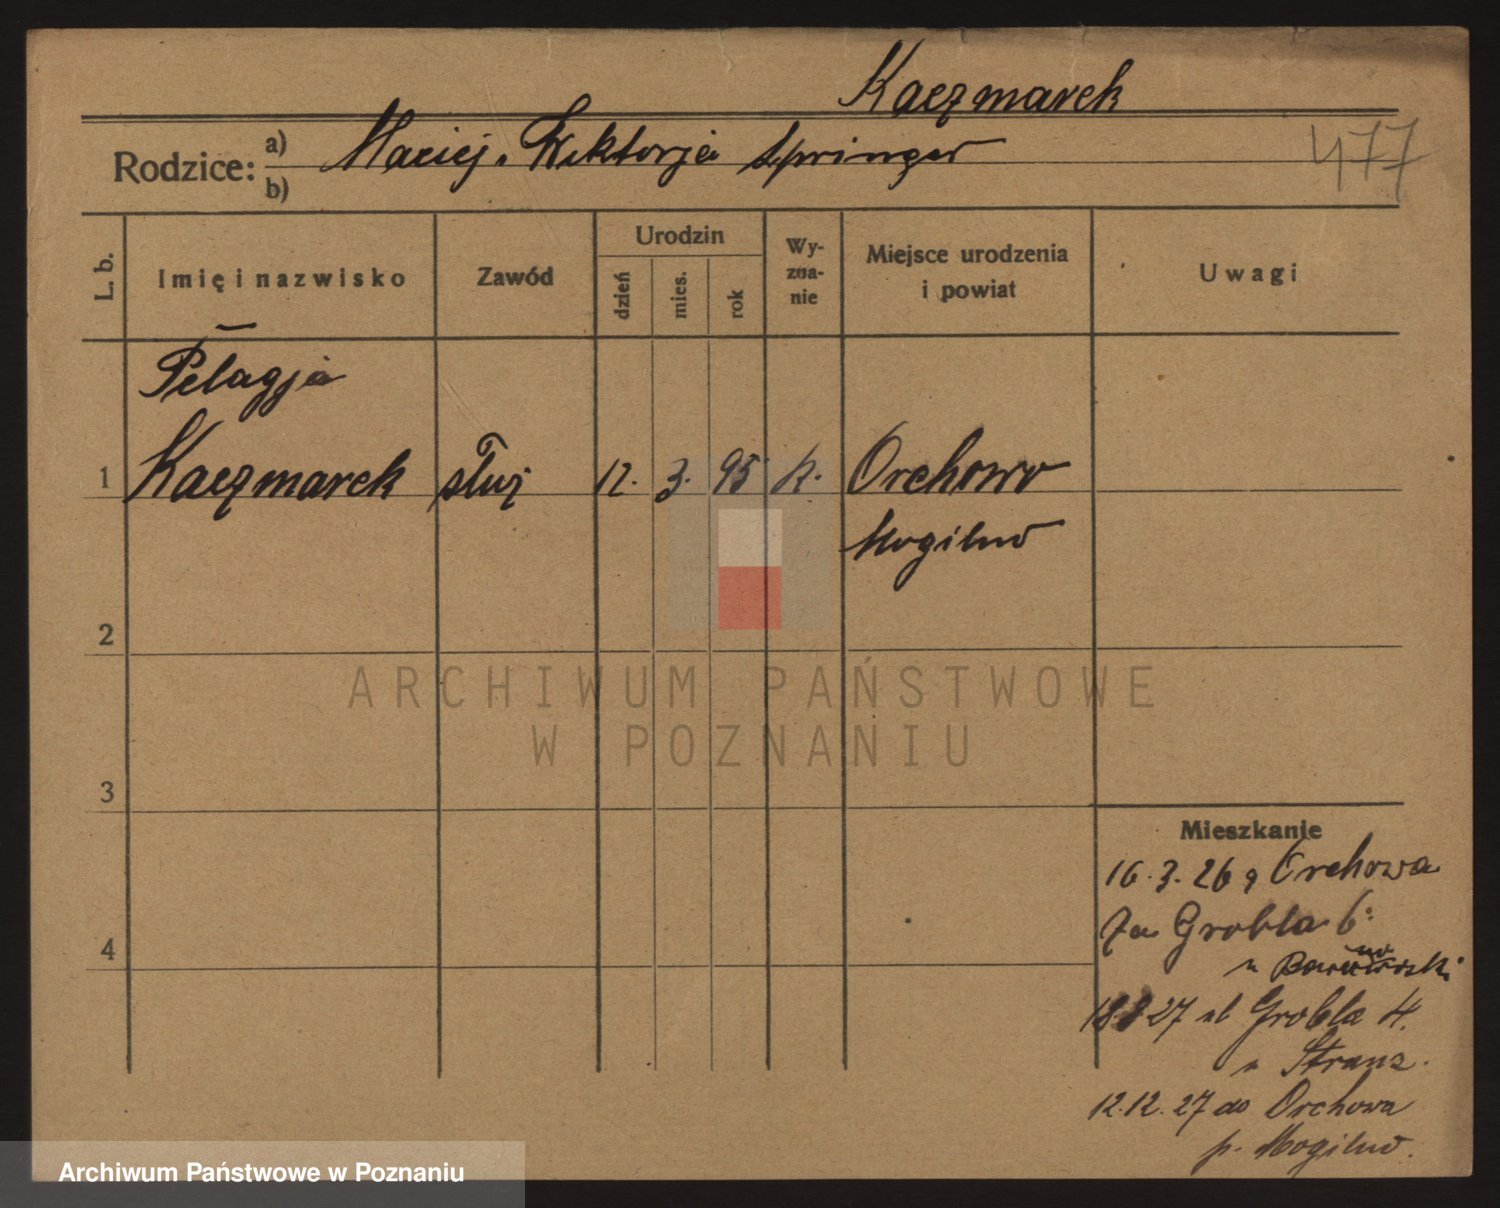 Kaczmarek
Rodzice: a) Maciej. Wiktorja Springer
b)
477
L. b.
Imię i nazwisko
Zawód
Urodzin
dzień
mies.
rok
Wy-
zna-
nie
Miejsce urodzenia
i powiat
Uwagi
Pelagja
1 Kaczmarek służ 12. 3. 95 k. Orchowo
Mogilno
2
3
4
Mieszkanie
16. 3. 26 z Orchowa
Za Grobla 6.
u
18.8 27 ul Grobla 4.
u Stranz.
12.12. 27 do Orchowa
p. Mogilno.
ARCHIWUM PAŃSTWOWE
W POZNANIU
Archiwum Państwowe w Poznaniu